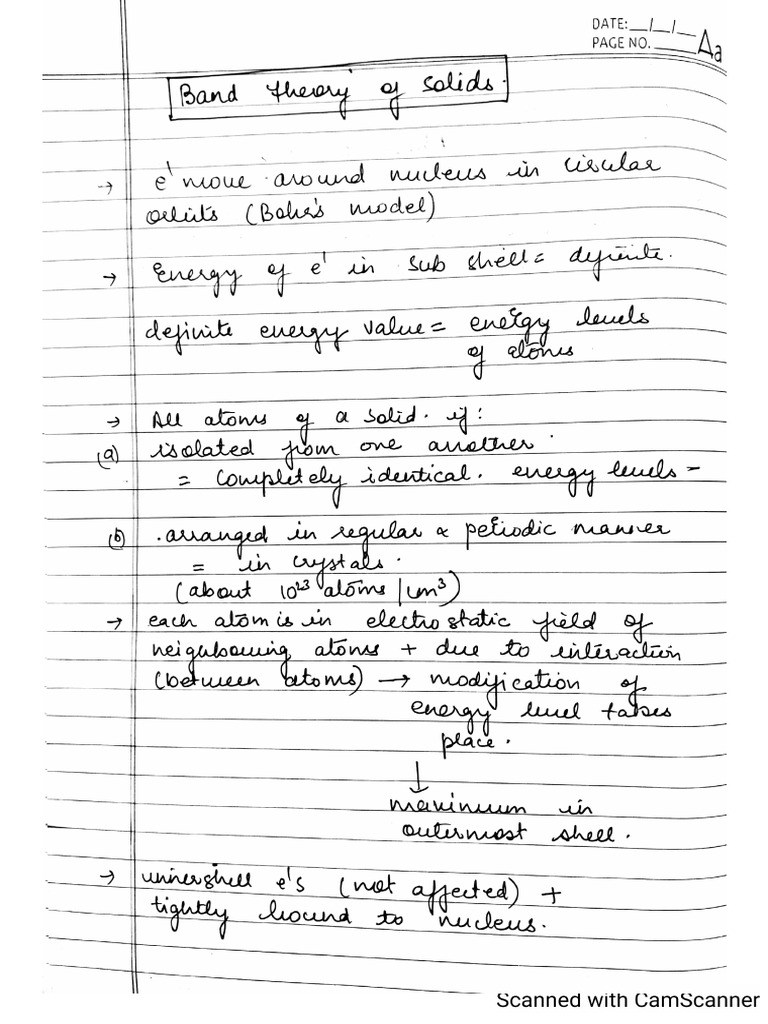 DATE: __/__/__
PAGE NO. ____ Aa
Band theory of solids.
→ e' move around nucleus in circular
orbits (Bohr's model)
→ Energy of e' in sub shell = definite.
definite energy value = energy levels
of atoms
→ All atoms of a solid. if:
(a) isolated from one another.
= completely identical. energy levels -
(b) .arranged in regular & periodic manner
= in crystals.
(about 10²³ atoms/cm³)
→ each atom is in electrostatic field of
neighbouring atoms + due to interaction
(between atoms) → modification of
energy level takes
place.
↓
maximum in
outermost shell.
→ innershell e's (not affected) +
tightly bound to nucleus.
Scanned with CamScanner